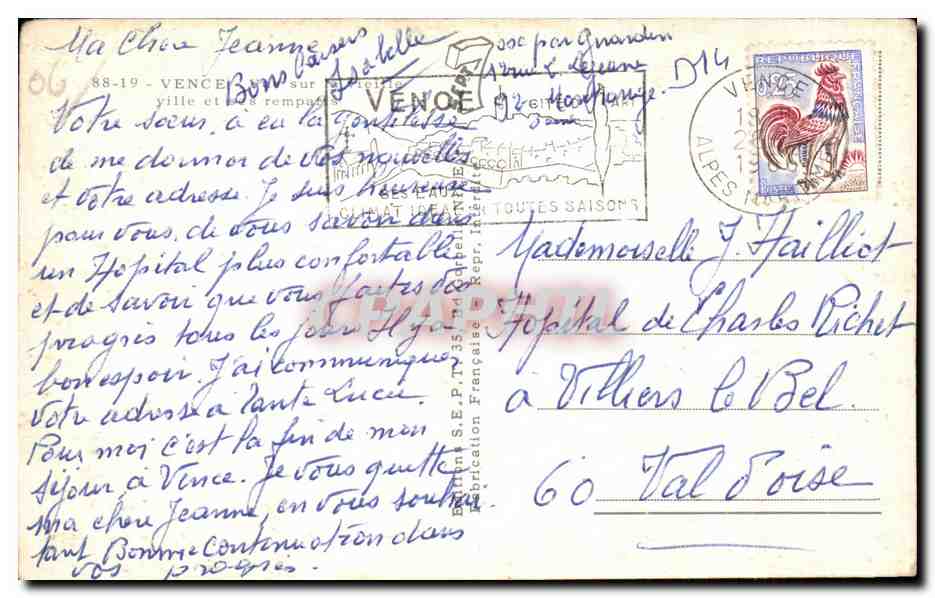 Ma Chère Jeanne
88-19 - VENCE sur
ville et ses remparts
Votre sœur, a eu la gentillesse
de me donner de vos nouvelles
et votre adresse. Je suis heureuse
pour vous, de vous savoir dans
un Hopital plus confortable
et de savoir que vous faites des
progrès tous les jours. Il y a
bon espoir. J'ai communiquer
votre adresse à Tante Lucie.
Pour moi c'est la fin de mon
séjour à Vence. Je vous quitte
ma chère Jeanne, en vous souhai
tant Bonne Continuation dans
vos progrès.
Bons baisers
Isabelle
06
exp par
92 Montrouge.
D14
VENCE
CITE D'ART
SES EAUX
CLIMAT IDEAL EN TOUTES SAISONS
VENCE
ALPES MMES
REPUBLIQUE FRANCAISE
Editions S.E.P.T. 35
Fabrication Française - Repr. interdite
CPAPHIL
Mademoiselle J. Hailliot
Hôpital de Charles Richet
à Villiers le Bel.
60 Val d'oise